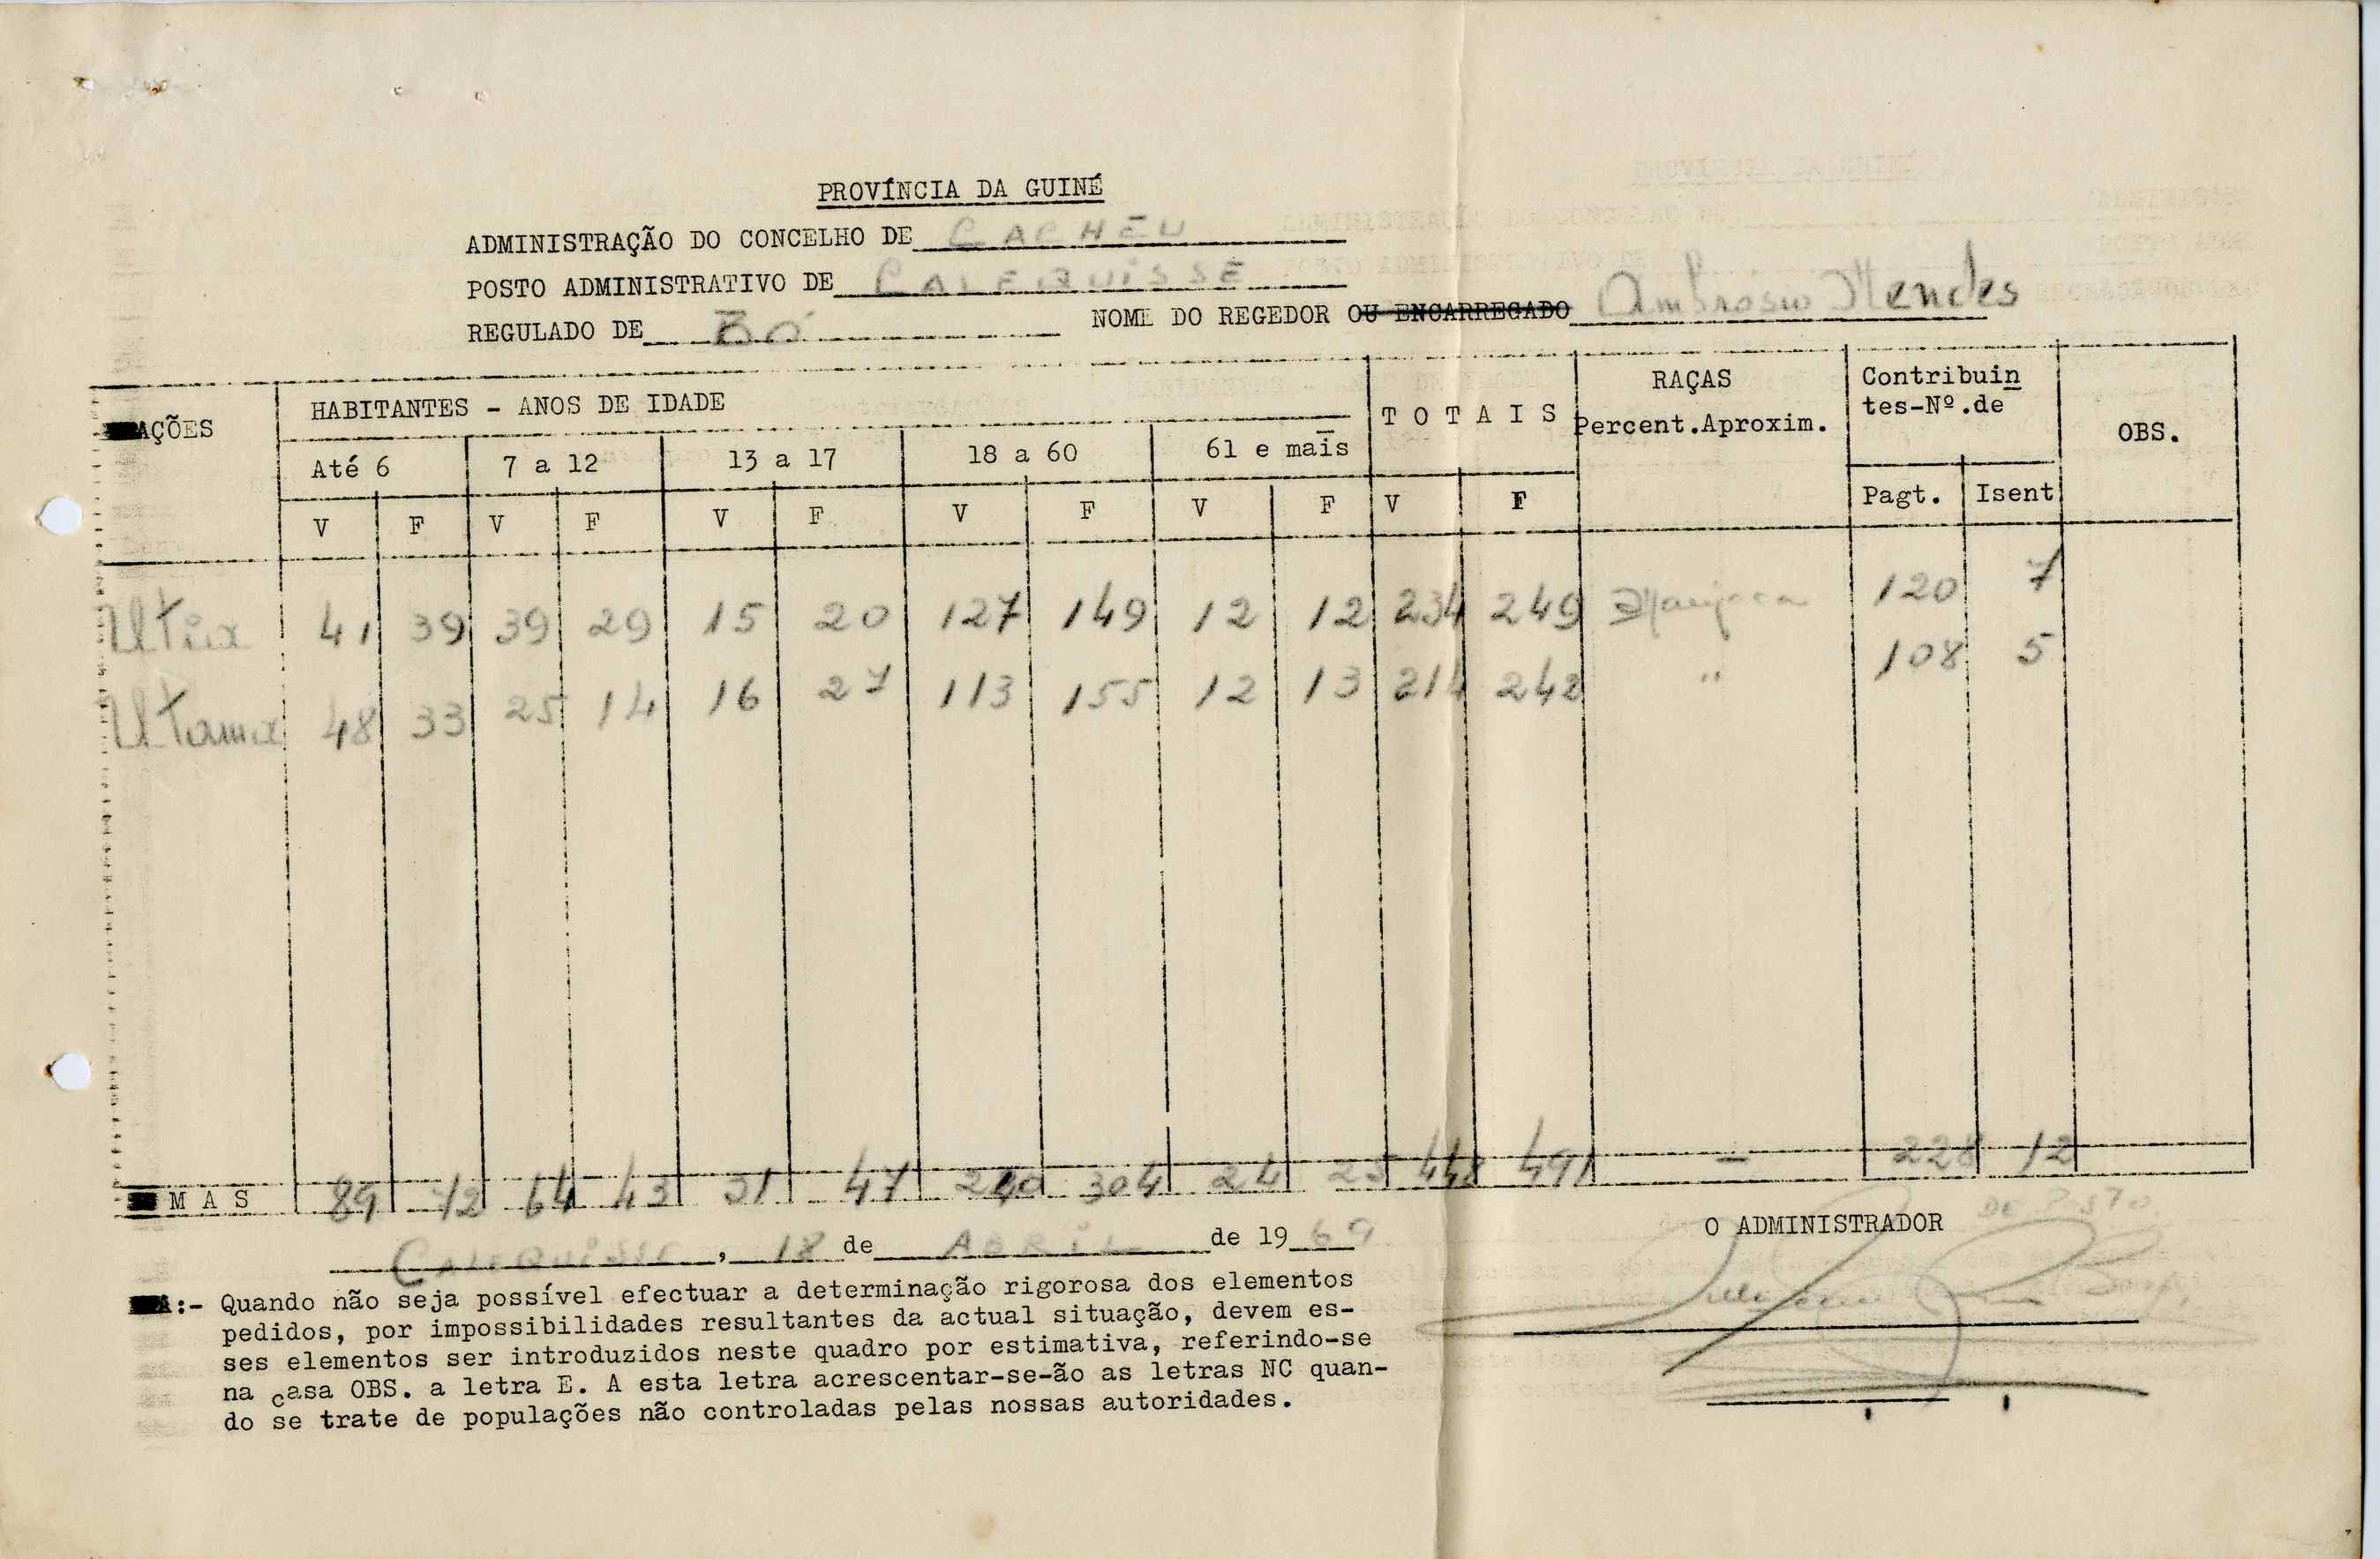 PROVÍNCIA DA GUINÉ
ADMINISTRAÇÃO DO CONCELHO DE CACHÉU
POSTO ADMINISTRATIVO DE CALEQUISSE
REGULADO DE BÓ NOME DO REGEDOR OU ENCARREGADO Ambrosio Mendes
AÇÕES HABITANTES - ANOS DE IDADE T O T A I S RAÇAS Percent.Aproxim. Contribuin tes-Nº.de OBS.
Até 6 7 a 12 13 a 17 18 a 60 61 e mais
V F V F V F V F V F V F Pagt. Isent
41 39 39 29 15 20 127 149 12 12 234 249 Manjaca 120 7
Utama 48 33 25 14 16 27 113 155 12 13 214 242 " 108 5
M A S 89 72 64 43 31 47 240 304 24 25 448 491 - 228 12
CALEQUISSE, 18 de ABRIL de 1969
O ADMINISTRADOR DE POSTO
A:- Quando não seja possível efectuar a determinação rigorosa dos elementos
pedidos, por impossibilidades resultantes da actual situação, devem es-
ses elementos ser introduzidos neste quadro por estimativa, referindo-se
na casa OBS. a letra E. A esta letra acrescentar-se-ão as letras NC quan-
do se trate de populações não controladas pelas nossas autoridades.